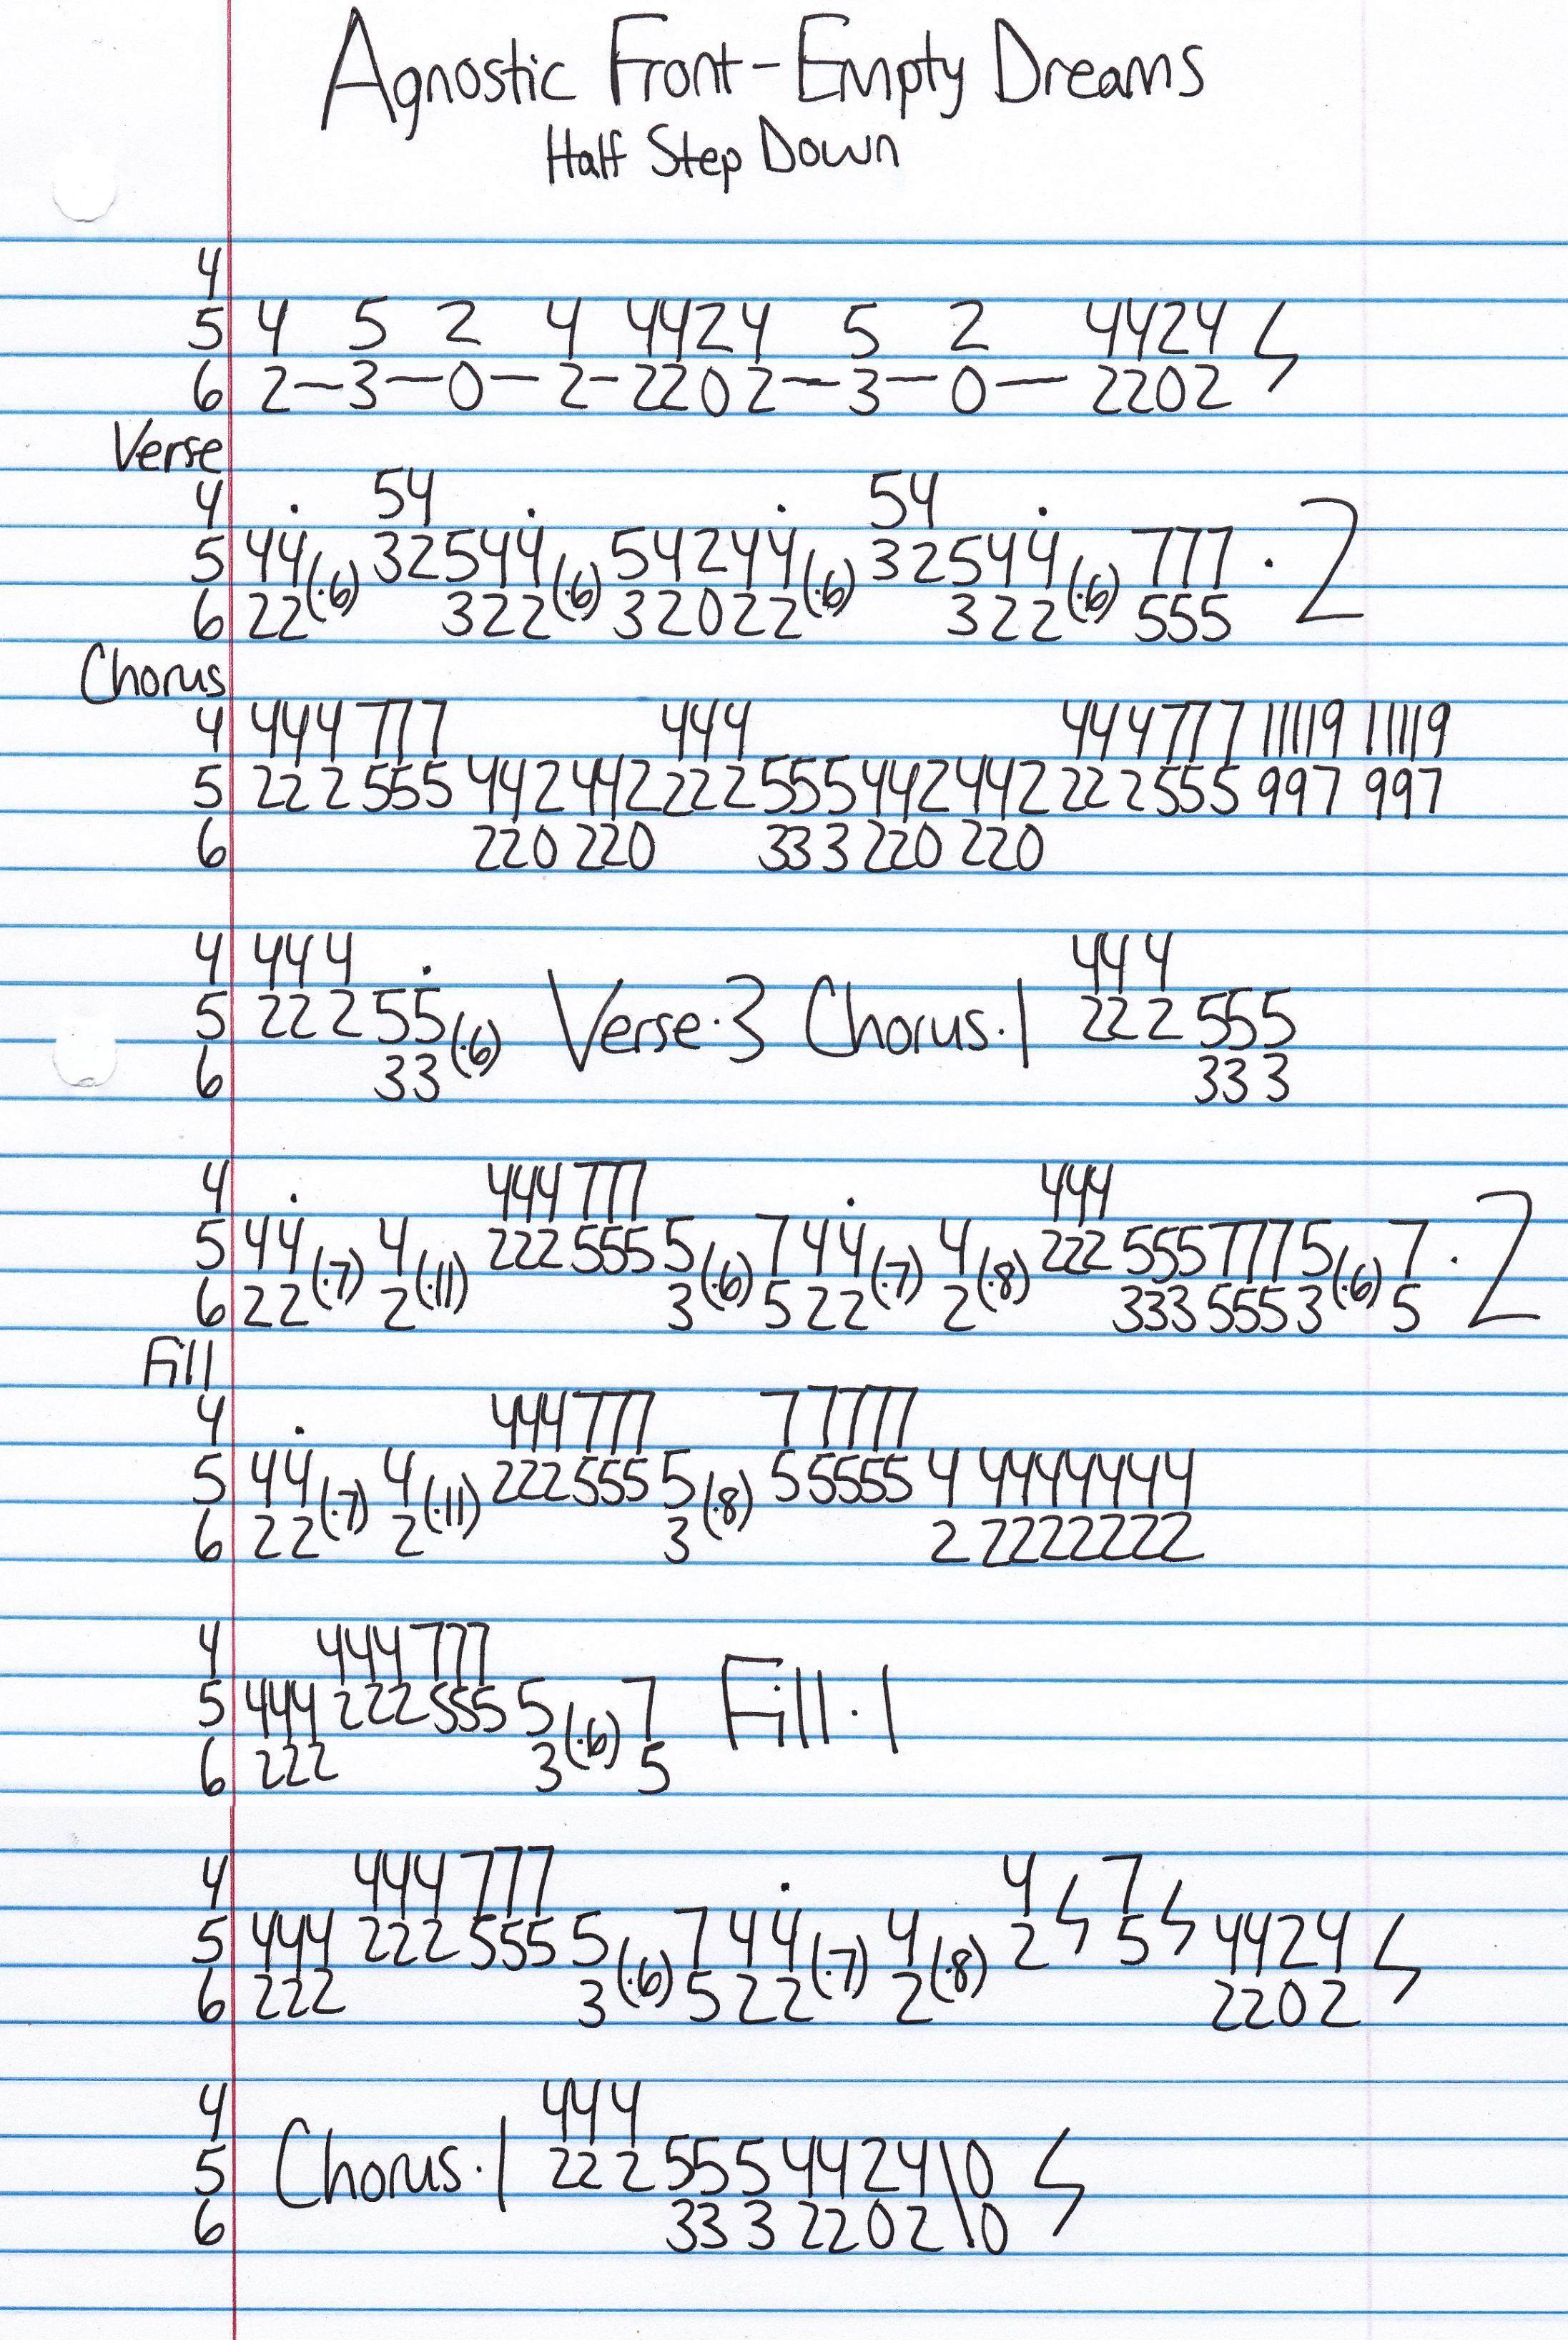 Agnostic Front - Empty Dreams
Half Step Down
4
5 4 5 2 4 4424 5 2 4424
6 2-3-0-2-2202-3-0-2202
Verse
4 . 54 . . 54 .
5 44(.6) 32544(.6) 54244(.6) 32544(.6) 777 . 2
6 22 322 32022 322 555
Chorus
4 444 777 444 444 777 11119 11119
5 222 555 442 442 222 555 442 442 222 555 997 997
6 220 220 333 220 220
4 444 . 444
5 222 55(.6) Verse.3 Chorus.1 222 555
6 33 333
4 . 444 777 . 444
5 44(.7) 4(.11) 222 555 5(.6) 7 44(.7) 4(.8) 222 555 777 5(.6) 7 . 2
6 22 2 3 5 22 2 333 555 3 5
Fill
4 . 444 777 7 7777
5 44(.7) 4(.11) 222 555 5(.8) 5 5555 4 4444444
6 22 2 3 2 2222222
4 444 777
5 444 222 555 5(.6) 7 Fill.1
6 222 3 5
4 444 777 . 4 7
5 444 222 555 5(.6) 7 44(.7) 4(.8) 2 5 4424
6 222 3 5 22 2 2202
4 444
5 Chorus.1 222 555 4424\0
6 333 2202\0